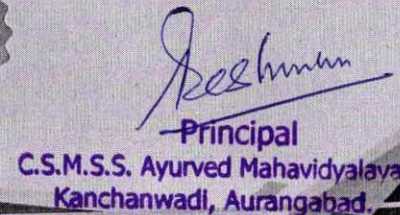 Principal
C.S.M.S.S. Ayurved Mahavidyalaya
Kanchanwadi, Aurangabad.